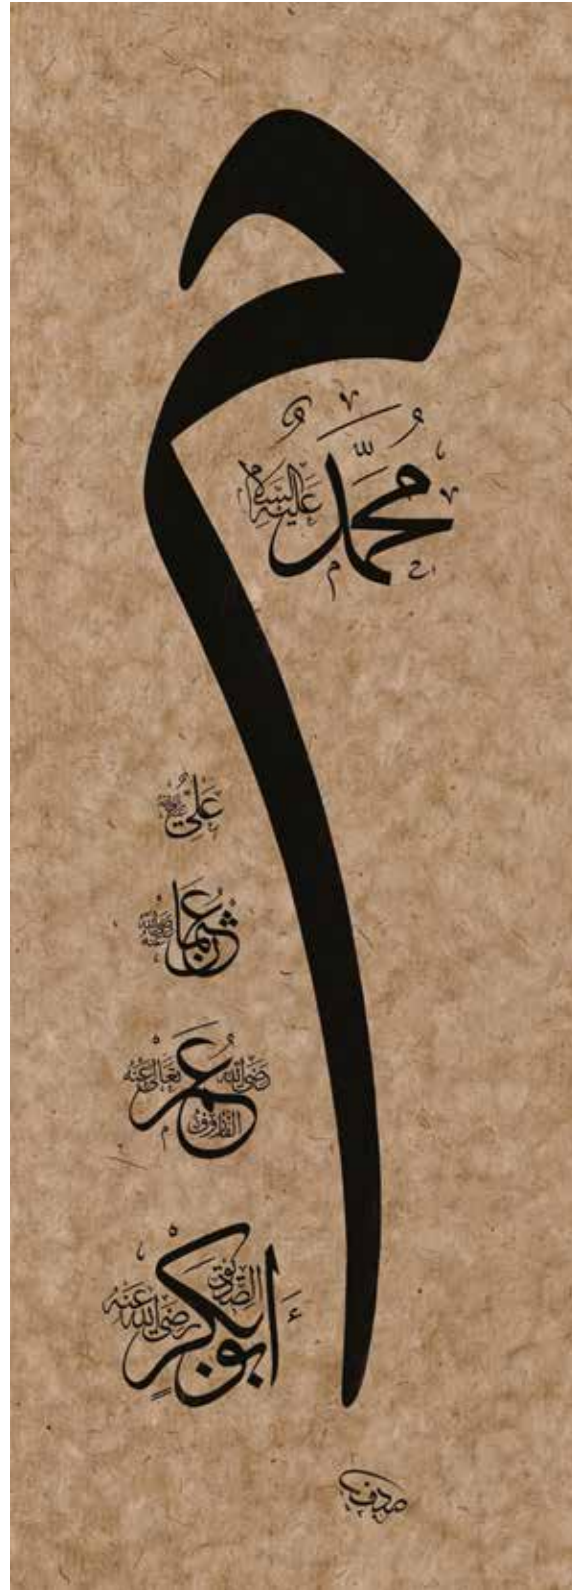 م
مُحَمَّدُ عَلَيْهِ السَّلَام
عَلِيُّ
عُثمَان رَضِيَ اللهُ عَنْهُ
عُمَر الفَارُوق رَضِيَ اللهُ تَعَالَى عَنْهُ
أَبُو بَكْرٍ الصِّدِّيق رَضِيَ اللهُ عَنْهُ
صدف